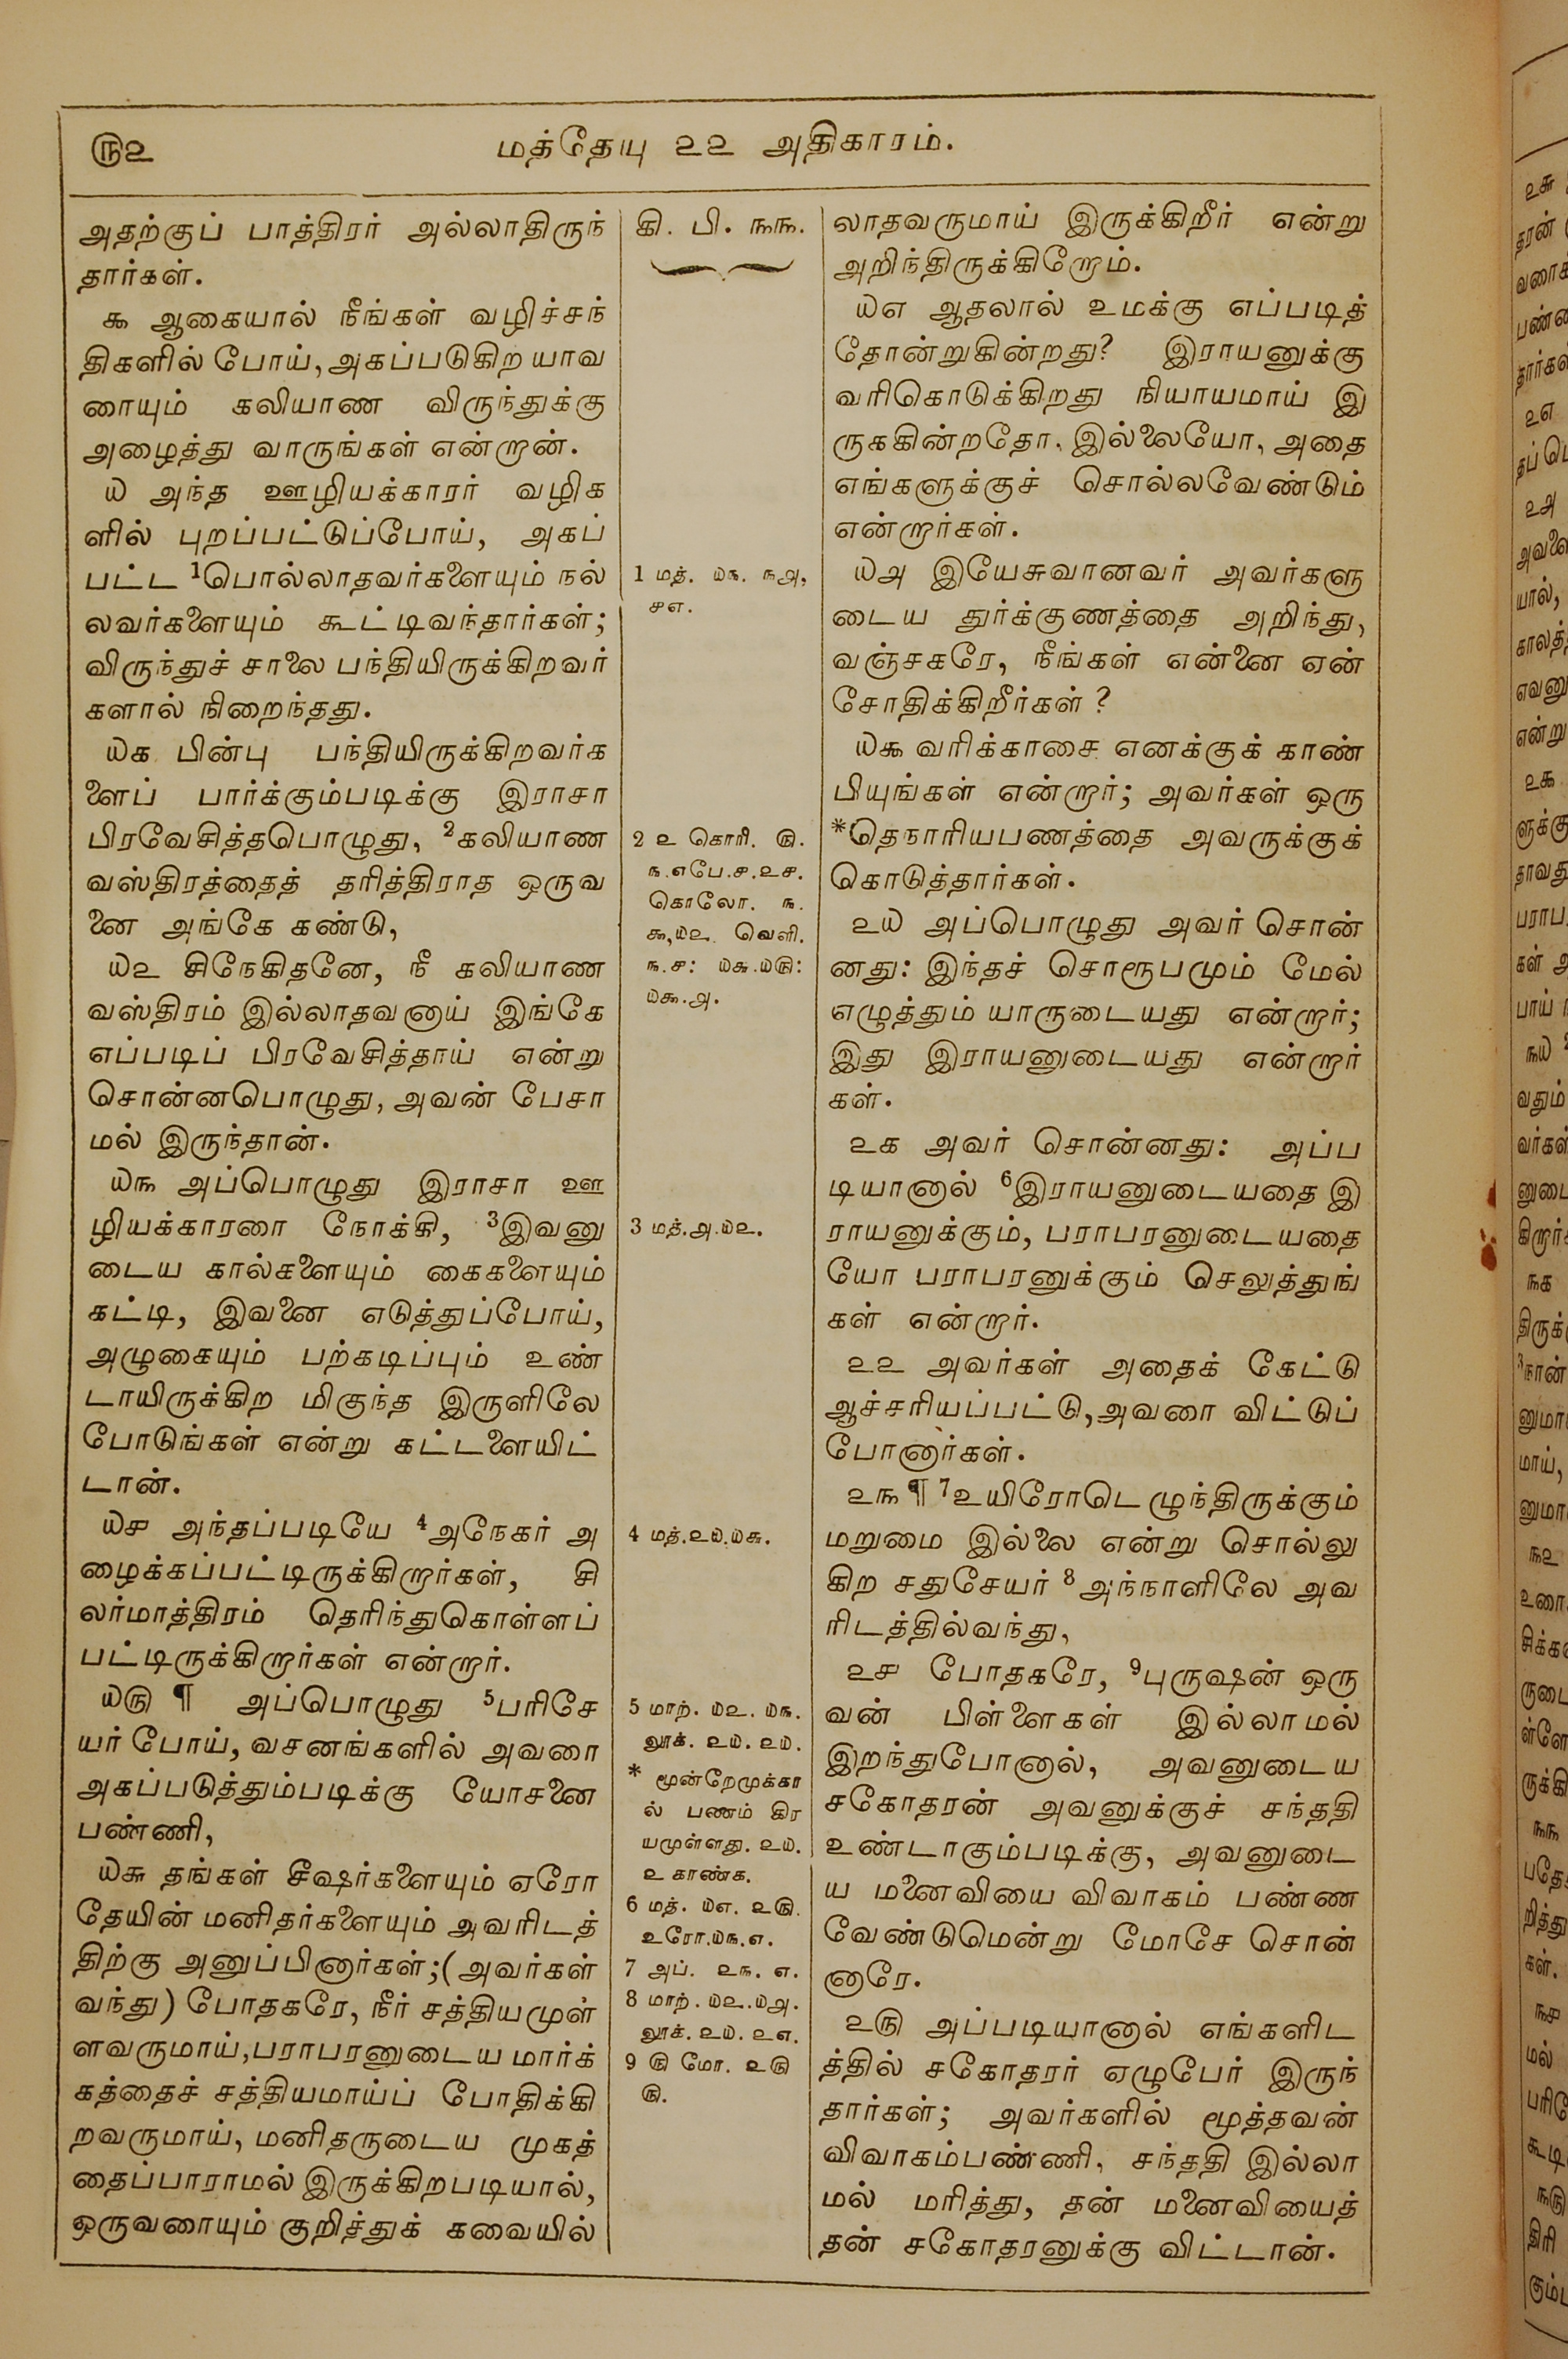 ௫௨
மத்தேயு ௨௨ அதிகாரம்.
அதற்குப் பாத்திரர் அல்லாதிருந்
தார்கள்.
௯ ஆகையால் நீங்கள் வழிச்சந்
திகளில் போய், அகப்படுகிற யாவ
ரையும் கலியாண விருந்துக்கு
அழைத்து வாருங்கள் என்றான்.
௰ அந்த ஊழியக்காரர் வழிக
ளில் புறப்பட்டுப்போய், அகப்
பட்ட ¹பொல்லாதவர்களையும் நல்
லவர்களையும் கூட்டிவந்தார்கள்;
விருந்துச் சாலை பந்தியிருக்கிறவர்
களால் நிறைந்தது.
௰௧ பின்பு பந்தியிருக்கிறவர்க
ளைப் பார்க்கும்படிக்கு இராசா
பிரவேசித்தபொழுது, ²கலியாண
வஸ்திரத்தைத் தரித்திராத ஒருவ
னை அங்கே கண்டு,
௰௨ சிநேகிதனே, நீ கலியாண
வஸ்திரம் இல்லாதவனாய் இங்கே
எப்படிப் பிரவேசித்தாய் என்று
சொன்னபொழுது, அவன் பேசா
மல் இருந்தான்.
௰௩ அப்பொழுது இராசா ஊ
ழியக்காரரை நோக்கி, ³இவனு
டைய கால்களையும் கைகளையும்
கட்டி, இவனை எடுத்துப்போய்,
அழுகையும் பற்கடிப்பும் உண்
டாயிருக்கிற மிகுந்த இருளிலே
போடுங்கள் என்று கட்டளையிட்
டான்.
௰௪ அந்தப்படியே ⁴அநேகர் அ
ழைக்கப்பட்டிருக்கிறார்கள், சி
லர்மாத்திரம் தெரிந்துகொள்ளப்
பட்டிருக்கிறார்கள் என்றார்.
௰௫ ¶ அப்பொழுது ⁵பரிசே
யர் போய், வசனங்களில் அவரை
அகப்படுத்தும்படிக்கு யோசனை
பண்ணி,
௰௬ தங்கள் சீஷர்களையும் ஏரோ
தேயின் மனிதர்களையும் அவரிடத்
திற்கு அனுப்பினார்கள்;(அவர்கள்
வந்து) போதகரே, நீர் சத்தியமுள்
ளவருமாய்,பராபரனுடைய மார்க்
கத்தைச் சத்தியமாய்ப் போதிக்கி
றவருமாய், மனிதருடைய முகத்
தைப்பாராமல் இருக்கிறபடியால்,
ஒருவரையும் குறித்துக் கவையில்
கி. பி. ௩௩.
1 மத். ௰௩. ௩௮,
௪௭.
2 ௨ கொரி. ௫.
௩.எபே.௪.௨௪.
கொலோ. ௩.
௯,௰௨. வெளி.
௩.௪: ௰௬.௰௫:
௰௯.௮.
3 மத்.௮.௰௨.
4 மத்.௨௰.௰௬.
5 மாற். ௰௨. ௰௩.
லூக். ௨௰. ௨௰.
* மூன்றேமுக்கா
ல் பணம் கிர
யமுள்ளது. ௨௰.
௨ காண்க.
6 மத். ௰௭. ௨௫.
உரோ.௰௩.௭.
7 அப். ௨௩. ௭.
8 மாற். ௰௨.௰௮.
லூக். ௨௰. ௨௭.
9 ௫ மோ. ௨௫
௫.
லாதவருமாய் இருக்கிறீர் என்று
அறிந்திருக்கிறோம்.
௰௭ ஆதலால் உமக்கு எப்படித்
தோன்றுகின்றது? இராயனுக்கு
வரிகொடுக்கிறது நியாயமாய் இ
ருககின்றதோ, இல்லையோ, அதை
எங்களுக்குச் சொல்லவேண்டும்
என்றார்கள்.
௰௮ இயேசுவானவர் அவர்களு
டைய துர்க்குணத்தை அறிந்து,
வஞ்சகரே, நீங்கள் என்னை ஏன்
சோதிக்கிறீர்கள் ?
௰௯ வரிக்காசை எனக்குக் காண்
பியுங்கள் என்றார்; அவர்கள் ஒரு
*தெநாரியபணத்தை அவருக்குக்
கொடுத்தார்கள்.
௨௰ அப்பொழுது அவர் சொன்
னது: இந்தச் சொரூபமும் மேல்
எழுத்தும் யாருடையது என்றார்;
இது இராயனுடையது என்றார்
கள்.
௨௧ அவர் சொன்னது: அப்ப
டியானால் ⁶இராயனுடையதை இ
ராயனுக்கும், பராபரனுடையதை
யோ பராபரனுக்கும் செலுத்துங்
கள் என்றார்.
௨௨ அவர்கள் அதைக் கேட்டு
ஆச்சரியப்பட்டு,அவரை விட்டுப்
போனார்கள்.
௨௩ ¶ ⁷உயிரோடெ ழுந்திருக்கும்
மறுமை இல்லை என்று சொல்லு
கிற சதுசேயர் ⁸அந்நாளிலே அவ
ரிடத்தில்வந்து,
௨௪ போதகரே, ⁹புருஷன் ஒரு
வன் பிள்ளைகள் இல்லாமல்
இறந்துபோனால், அவனுடைய
சகோதரன் அவனுக்குச் சந்ததி
உண்டாகும்படிக்கு, அவனுடை
ய மனைவியை விவாகம் பண்ண
வேண்டுமென்று மோசே சொன்
னாரே.
௨௫ அப்படியானால் எங்களிட
த்தில் சகோதரர் ஏழுபேர் இருந்
தார்கள்; அவர்களில் மூத்தவன்
விவாகம்பண்ணி, சந்ததி இல்லா
மல் மரித்து, தன் மனைவியைத்
தன் சகோதரனுக்கு விட்டான்.